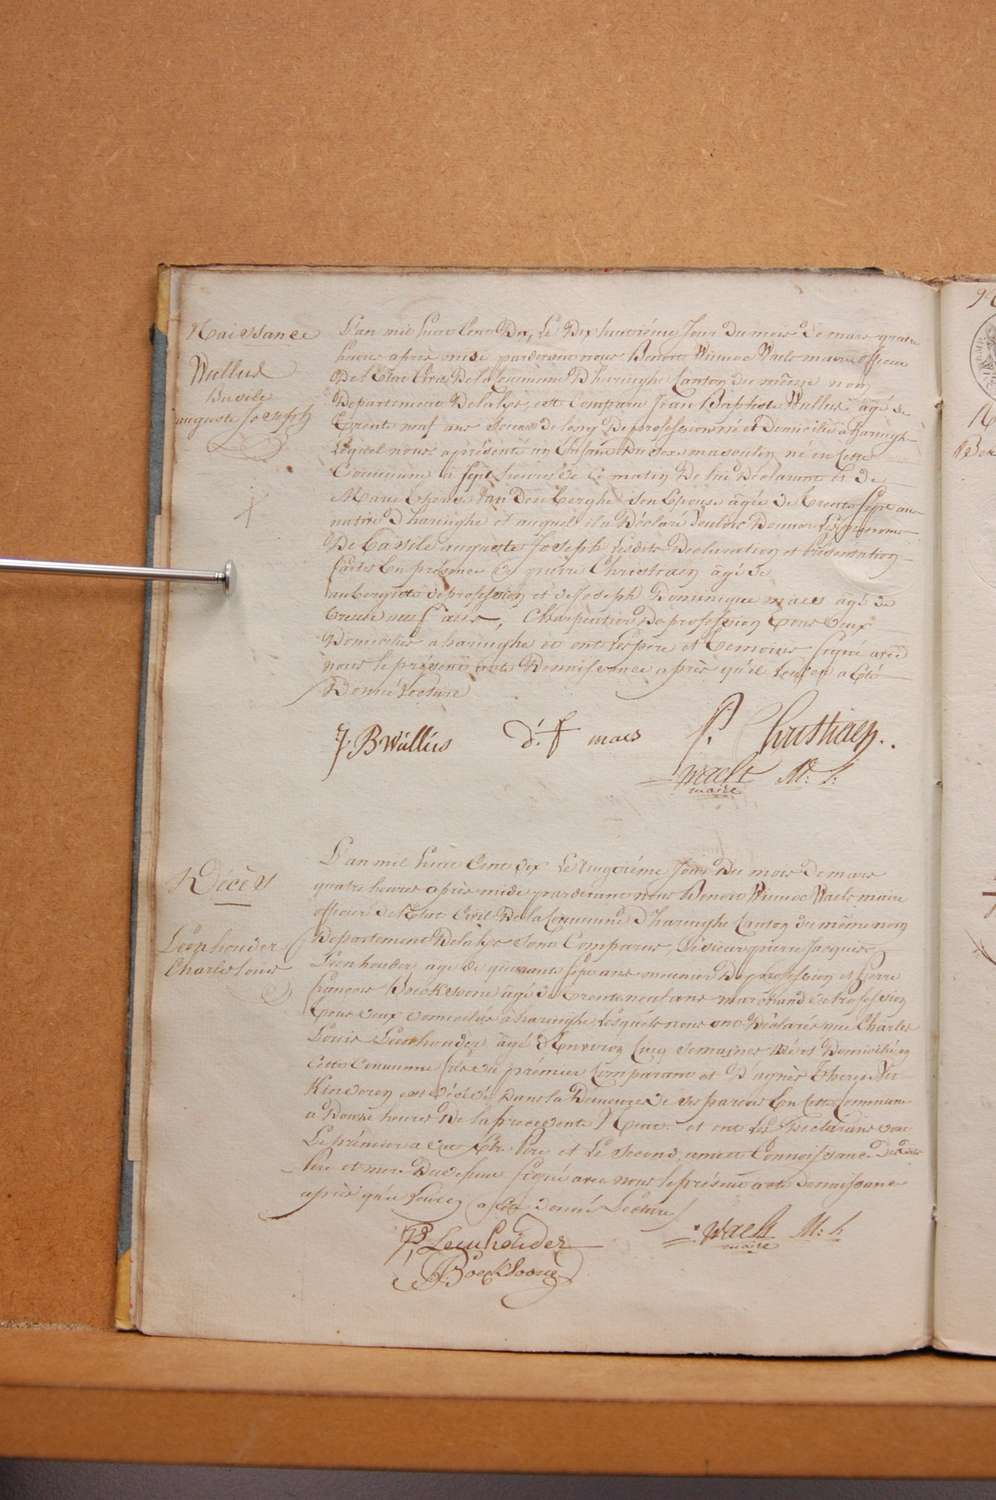 Naissance
Wullus
Basile
auguste Joseph
L'an mil huit Cent Dix, Le Dix huitiéme Jour Du mois De mars quatre
heures aprés midi pardevant nous Benoit Winnoc Waels maire officier
De L'Etat Civil De la Commune D'haringhe Canton du même nom
Departement De la Lys, est Comparu Jean Baptiste Wullus agé de
Trente neuf ans De profession né et Domicilié a haringhe
Lequel nous a présenté un Enfant Du Sexe masculin né en Cette
Commune à sept heures de ce matin De lui Déclarant et de
Marie Therese Van Den Berghe Son Epouse âgée de Trente Sept ans
native D'haringhe et auquel il a Déclaré vouloir Donner les prenoms
De Basile auguste Joseph Lesdites Declaration et Présentation
faites En présence de pierre Christiaen âgé de
aubergiste de profession et de Joseph Dominique maes agé de
trente neuf ans, Charpentier De profession Tous Deux
Domiciliés a haringhe et ont les père et Témoins Signé avec
nous le présent acte De naissance après qu'il leur en a eté
Donné Lecture
J. B Wüllüs
d. f maes
P. Christiaen
Waels M: h:
maire
Décès
Leenhouder
Charle Louis
L'an mil huit Cent dix Le vingtiéme Jour Du mois De mars
quatre heures après midi pardevant nous Benoit Winnoc Waels maire
officier de l'Etat Civil De la Commune D'haringhe Canton du même nom
Departement De la Lys Sont Comparus, pierre Jacques
Leenhouder agé de quarante Sept ans meunier De profession et pierre
françois Boeksoone âgé de trente neuf ans marchand de Profession
tous deux domiciliés à haringhe Lesquels nous ont Déclaré que Charles
Louis Leenhouder âgé D'Environ Cinq Semaines Né et Domicilié en
Cette Commune fils du premier Comparant et D'agnès Therese
est décédé Dans la Demeure de Ses parens En Cette Commune
a Douze heures De la précédente Nuit. et ont les Declarans dont
Le premier a dit être Père et Le Second, ami et Connoissance Desdits
Père et mere Du defunt Signé avec nous le présent acte
après qu'il Leur en a eté donné Lecture
P, Leenhouder
Boeksoone
Waels M: h
maire